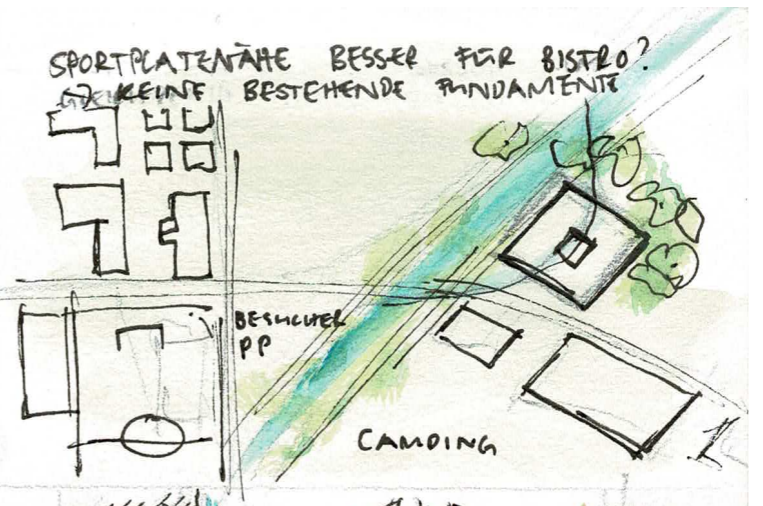 SPORTPLATZNÄHE BESSER FÜR BISTRO?
KEINE BESTEHENDE FUNDAMENTE
BESUCHER
PP
CAMPING
1